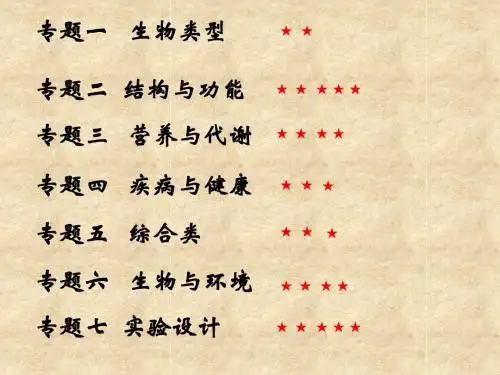 专题一 生物类型 ★ ★
专题二 结构与功能 ★ ★ ★ ★ ★
专题三 营养与代谢 ★ ★ ★ ★
专题四 疾病与健康 ★ ★ ★
专题五 综合类 ★ ★ ★
专题六 生物与环境 ★ ★ ★ ★
专题七 实验设计 ★ ★ ★ ★ ★